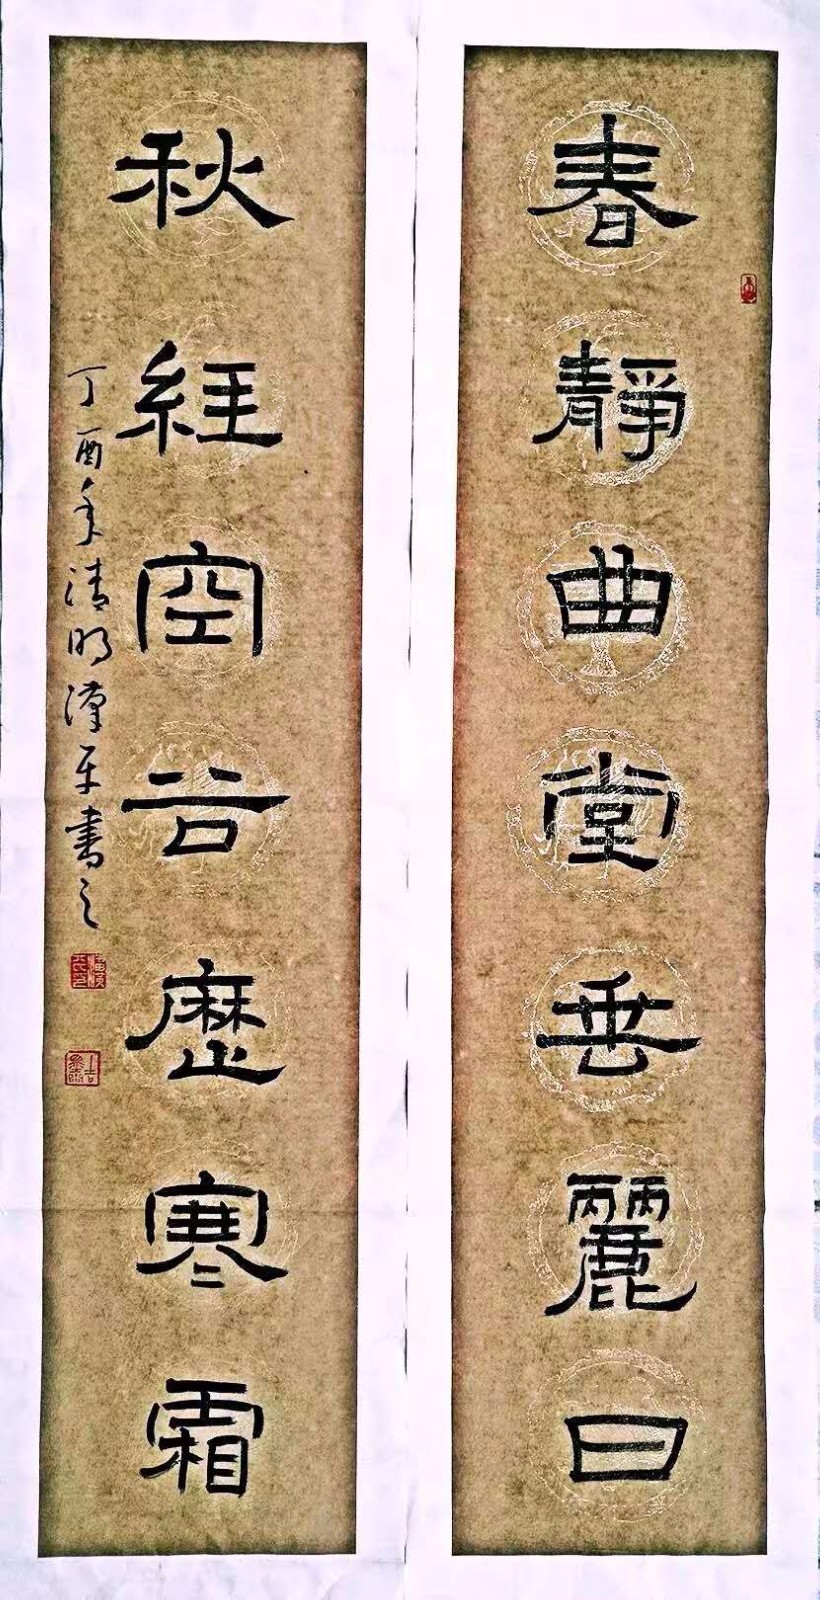 春靜曲堂垂麗日
秋經空谷歷寒霜
丁酉年清明漢平書之